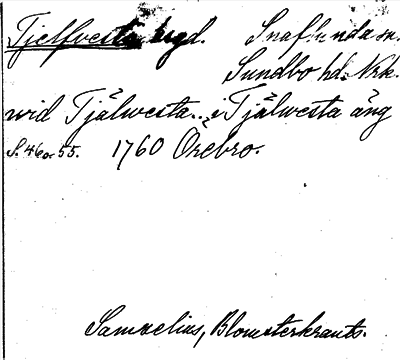 Tjelfvesta bygd. Snaflunda sn.
Sundbo hd. Nrk.
wid Tjälwesta.. i Tjälwesta äng
S. 46 o. 55. 1760 Örebro.
Samzelius, Blomsterkrants.